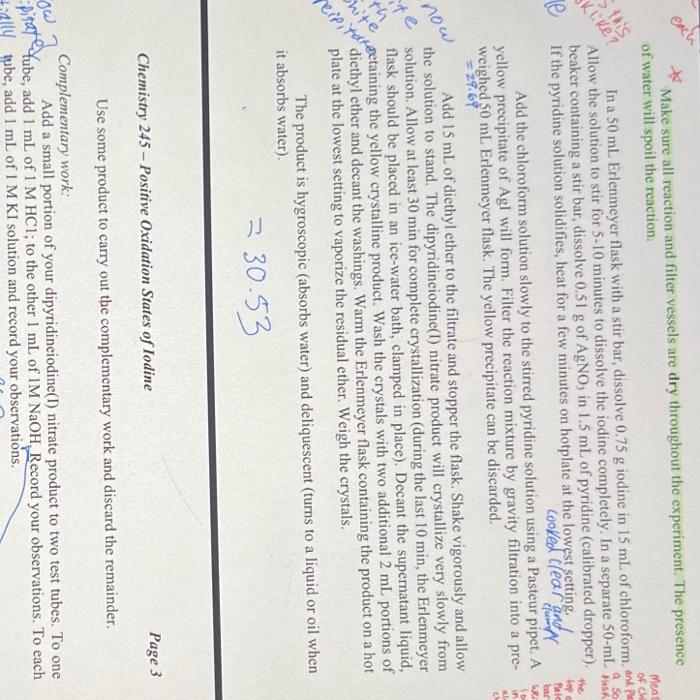 each
Make sure all reaction and filter vessels are dry throughout the experiment. The presence
of water will spoil the reaction.
In a 50 mL Erlenmeyer flask with a stir bar, dissolve 0.75 g iodine in 15 mL of chloroform.
Allow the solution to stir for 5-10 minutes to dissolve the iodine completely. In a separate 50-mL
beaker containing a stir bar, dissolve 0.51 g of AgNO3 in 1.5 mL of pyridine (calibrated dropper).
If the pyridine solution solidifies, heat for a few minutes on hotplate at the lowest setting.
looked clear and
clumpy
Add the chloroform solution slowly to the stirred pyridine solution using a Pasteur pipet. A
yellow precipitate of AgI will form. Filter the reaction mixture by gravity filtration into a pre-
weighed 50 mL Erlenmeyer flask. The yellow precipitate can be discarded.
= 29.69
Add 15 mL of diethyl ether to the filtrate and stopper the flask. Shake vigorously and allow
the solution to stand. The dipyridineiodine(I) nitrate product will crystallize very slowly from
solution. Allow at least 30 min for complete crystallization (during the last 10 min, the Erlenmeyer
flask should be placed in an ice-water bath, clamped in place). Decant the supernatant liquid,
retaining the yellow crystalline product. Wash the crystals with two additional 2 mL portions of
diethyl ether and decant the washings. Warm the Erlenmeyer flask containing the product on a hot
plate at the lowest setting to vaporize the residual ether. Weigh the crystals.
now
white
The product is hygroscopic (absorbs water) and deliquescent (turns to a liquid or oil when
it absorbs water).
= 30.53
Chemistry 245 – Positive Oxidation States of Iodine Page 3
Use some product to carry out the complementary work and discard the remainder.
Complementary work:
Add a small portion of your dipyridineiodine(I) nitrate product to two test tubes. To one
tube, add 1 mL of 1 M HCl; to the other 1 mL of 1M NaOH. Record your observations. To each
tube, add 1 mL of 1 M KI solution and record your observations.